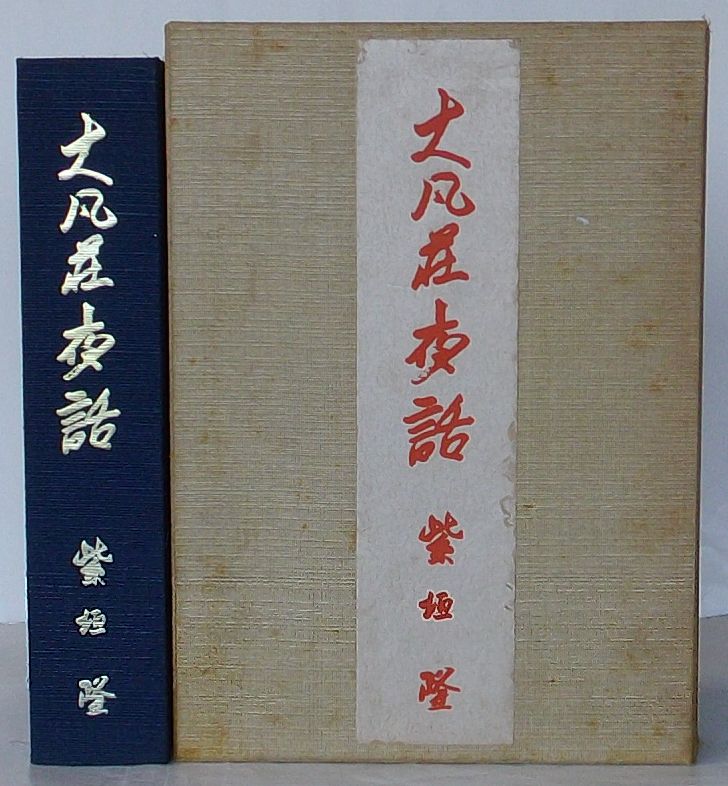 大凡荘夜話
紫垣隆
大凡荘夜話
紫垣隆